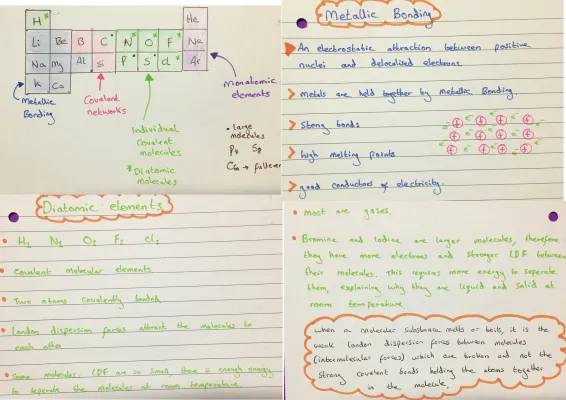 H *
He
Li Be B C • N * O * F * Ne
Na Mg Al Si P • S • Cl * Ar
K Ca
Metallic
Bonding
Covalent
networks
Individual
Covalent
molecules
* Diatomic
molecules
Monatomic
elements
• large
molecules
P4 S8
C60 → fulleren
Metallic Bonding
An electrostatic attraction between positive
nuclei and delocalised electrons
metals are held together by Metallic Bonding
Strong bonds
high melting points
good conductors of electricity.
Diatomic elements
• H2 N2 O2 F2 Cl2
• Covalent molecular elements
• Two atoms covalently bonded
• London dispersion forces attract the molecules to
each other
• Some molecules. LDF are so small there is enough energy
to seperate the molecules at room temperature.
• most are gases.
• Bromine and Iodine are larger molecules, therefore
they have more electrons and stronger LDF between
their molecules. This requires more energy to seperate
them, explaining why they are liquid and solid at
room temperature
when a molecular substance melts or boils, it is the
weak London dispersion forces between molecules
(intermolecular forces) which are broken and not the
strong covalent bonds holding the atoms together
in the molecule.